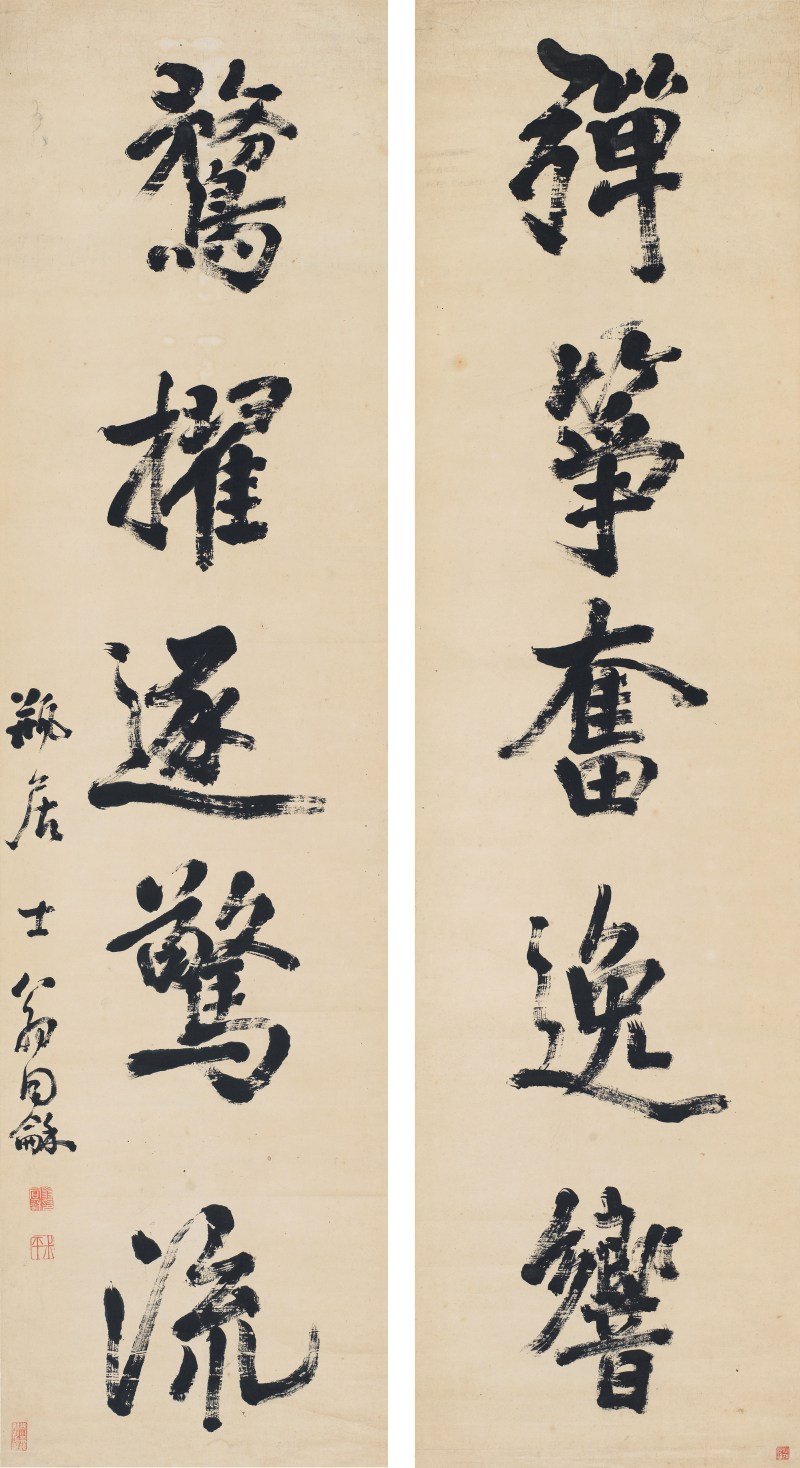 彈箏奮逸響
鶩擢逐驚流
瓶居士翁同龢
叔平